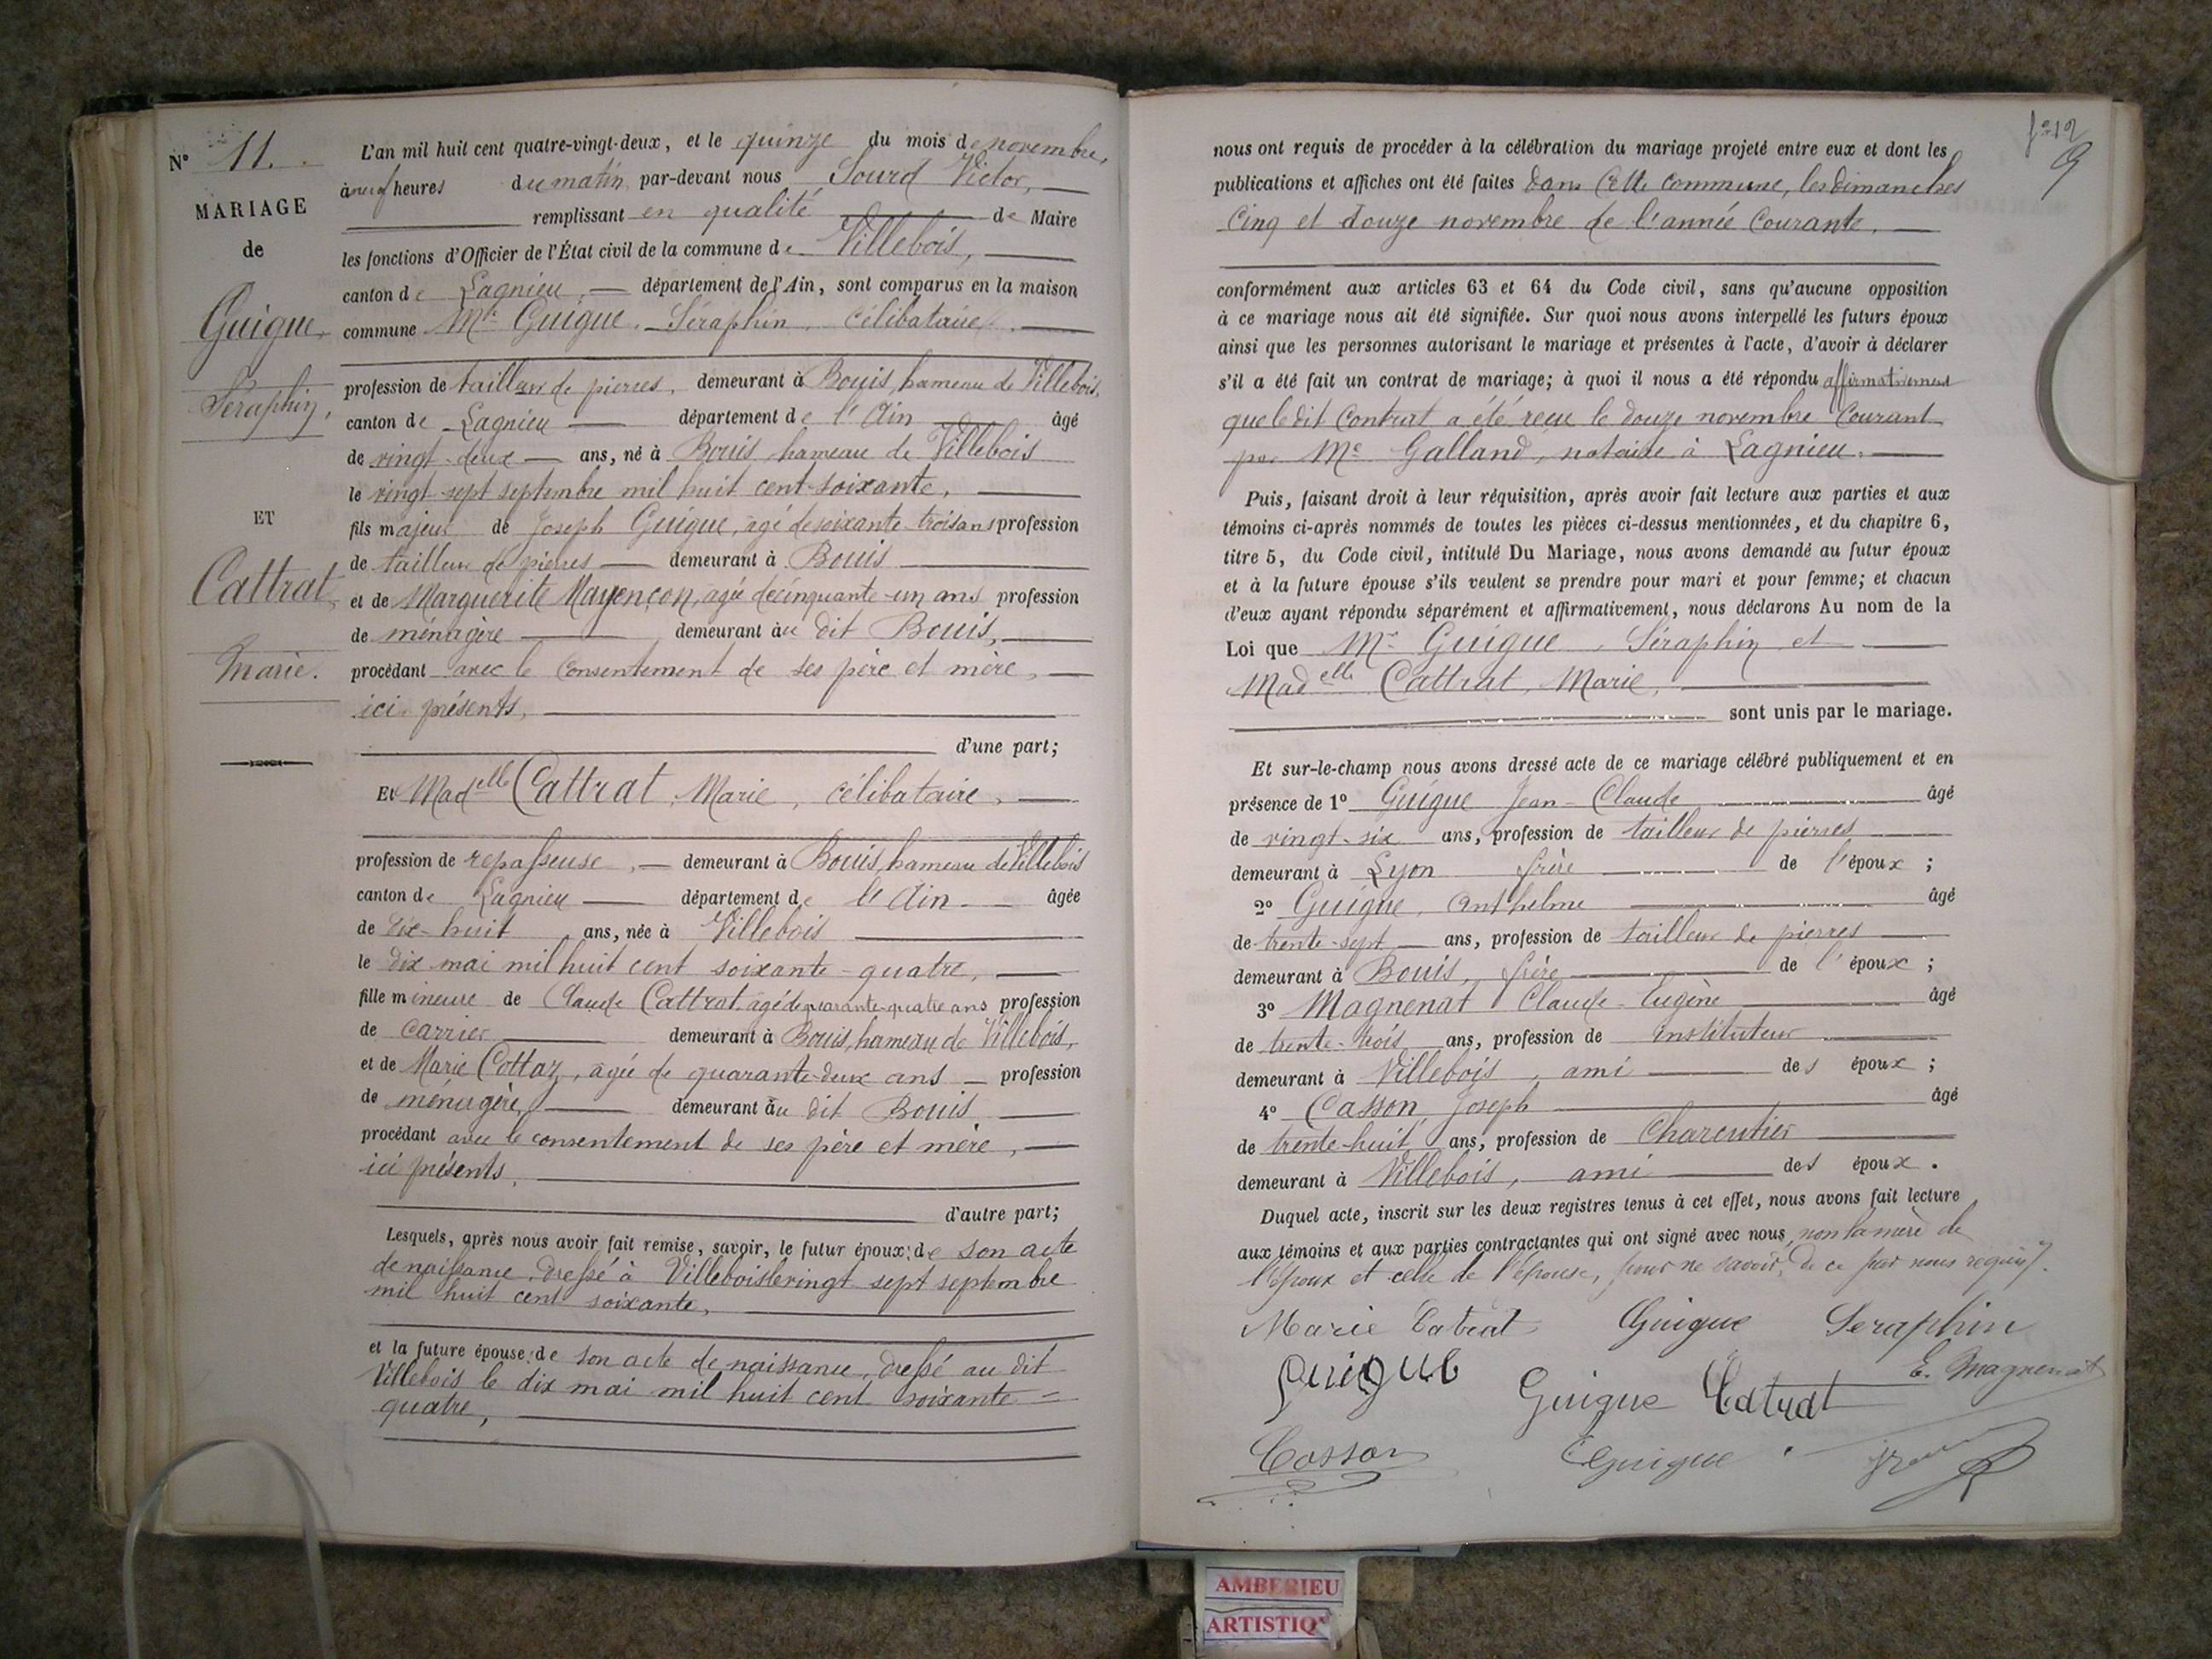 N° 11.
MARIAGE
de
Guigue,
Séraphin,
ET
Cattrat,
Marie.
L'an mil huit cent quatre-vingt-deux, et le quinze du mois de novembre,
à neuf heures du matin, par-devant nous Sourd Victor,
remplissant en qualité de Maire
les fonctions d'Officier de l'État civil de la commune de Villebois,
canton de Lagnieu, département de l'Ain, sont comparus en la maison
commune Mr Guigue, Séraphin, célibataire,
profession de tailleur de pierres, demeurant à Bouis, hameau de Villebois,
canton de Lagnieu département de l'Ain âgé
de vingt-deux ans, né à Bouis, hameau de Villebois
le vingt-sept septembre mil huit cent soixante,
fils majeur de Joseph Guigue, âgé de soixante-trois ans profession
de tailleur de pierres demeurant à Bouis
et de Marguerite Mayençon, agée de cinquante-un ans profession
de ménagère demeurant au dit Bouis,
procédant avec le consentement de ses père et mère,
ici présents,
d'une part;
Et Madelle Cattrat, Marie, célibataire,
profession de repasseuse, demeurant à Bouis, hameau de Villebois
canton de Lagnieu département de l'Ain âgée
de dix-huit ans, née à Villebois
le dix mai mil huit cent soixante-quatre,
fille mineure de Claude Cattrat, âgé de quarante-quatre ans profession
de carrier demeurant à Bouis, hameau de Villebois,
et de Marie Cottaz, agée de quarante-deux ans profession
de ménagère demeurant au dit Bouis
procédant avec le consentement de ses père et mère,
ici présents,
d'autre part;
Lesquels, après nous avoir fait remise, savoir, le futur époux: de son acte
de naissance, dressé à Villebois le vingt sept septembre
mil huit cent soixante,
et la future épouse: de son acte de naissance, dressé au dit
Villebois le dix mai mil huit cent soixante=
quatre,
fo 12
9
nous ont requis de procéder à la célébration du mariage projeté entre eux et dont les
publications et affiches ont été faites dans cette commune, les dimanches
cinq et douze novembre de l'année courante,
conformément aux articles 63 et 64 du Code civil, sans qu'aucune opposition
à ce mariage nous ait été signifiée. Sur quoi nous avons interpellé les futurs époux
ainsi que les personnes autorisant le mariage et présentes à l'acte, d'avoir à déclarer
s'il a été fait un contrat de mariage; à quoi il nous a été répondu affirmativement
que le dit contrat a été reçu le douze novembre courant
par Me Galland, notaire à Lagnieu.
Puis, faisant droit à leur réquisition, après avoir fait lecture aux parties et aux
témoins ci-après nommés de toutes les pièces ci-dessus mentionnées, et du chapitre 6,
titre 5, du Code civil, intitulé Du Mariage, nous avons demandé au futur époux
et à la future épouse s'ils veulent se prendre pour mari et pour femme; et chacun
d'eux ayant répondu séparément et affirmativement, nous déclarons Au nom de la
Loi que Mr Guigue, Séraphin et
Madelle Cattrat, Marie,
sont unis par le mariage.
Et sur-le-champ nous avons dressé acte de ce mariage célébré publiquement et en
présence de 1° Guigue Jean-Claude âgé
de vingt-six ans, profession de tailleur de pierres
demeurant à Lyon frère de l'époux;
2° Guigue, Anthelme âgé
de trente-sept ans, profession de tailleur de pierres
demeurant à Bouis, frère de l'époux;
3° Magnenat Claude-Eugène âgé
de trente-trois ans, profession de instituteur
demeurant à Villebois, ami des époux;
4° Casson, Joseph âgé
de trente-huit ans, profession de Charcutier
demeurant à Villebois, ami des époux.
Duquel acte, inscrit sur les deux registres tenus à cet effet, nous avons fait lecture
aux témoins et aux parties contractantes qui ont signé avec nous, non la mère de
l'époux et celle de l'épouse, pour ne savoir, de ce par nous requis.
Marie Catrat Guigue Seraphin
Guigue Guigue Catrat E. Magnenat
Casson Guigue
AMBERIEU
ARTISTIQ